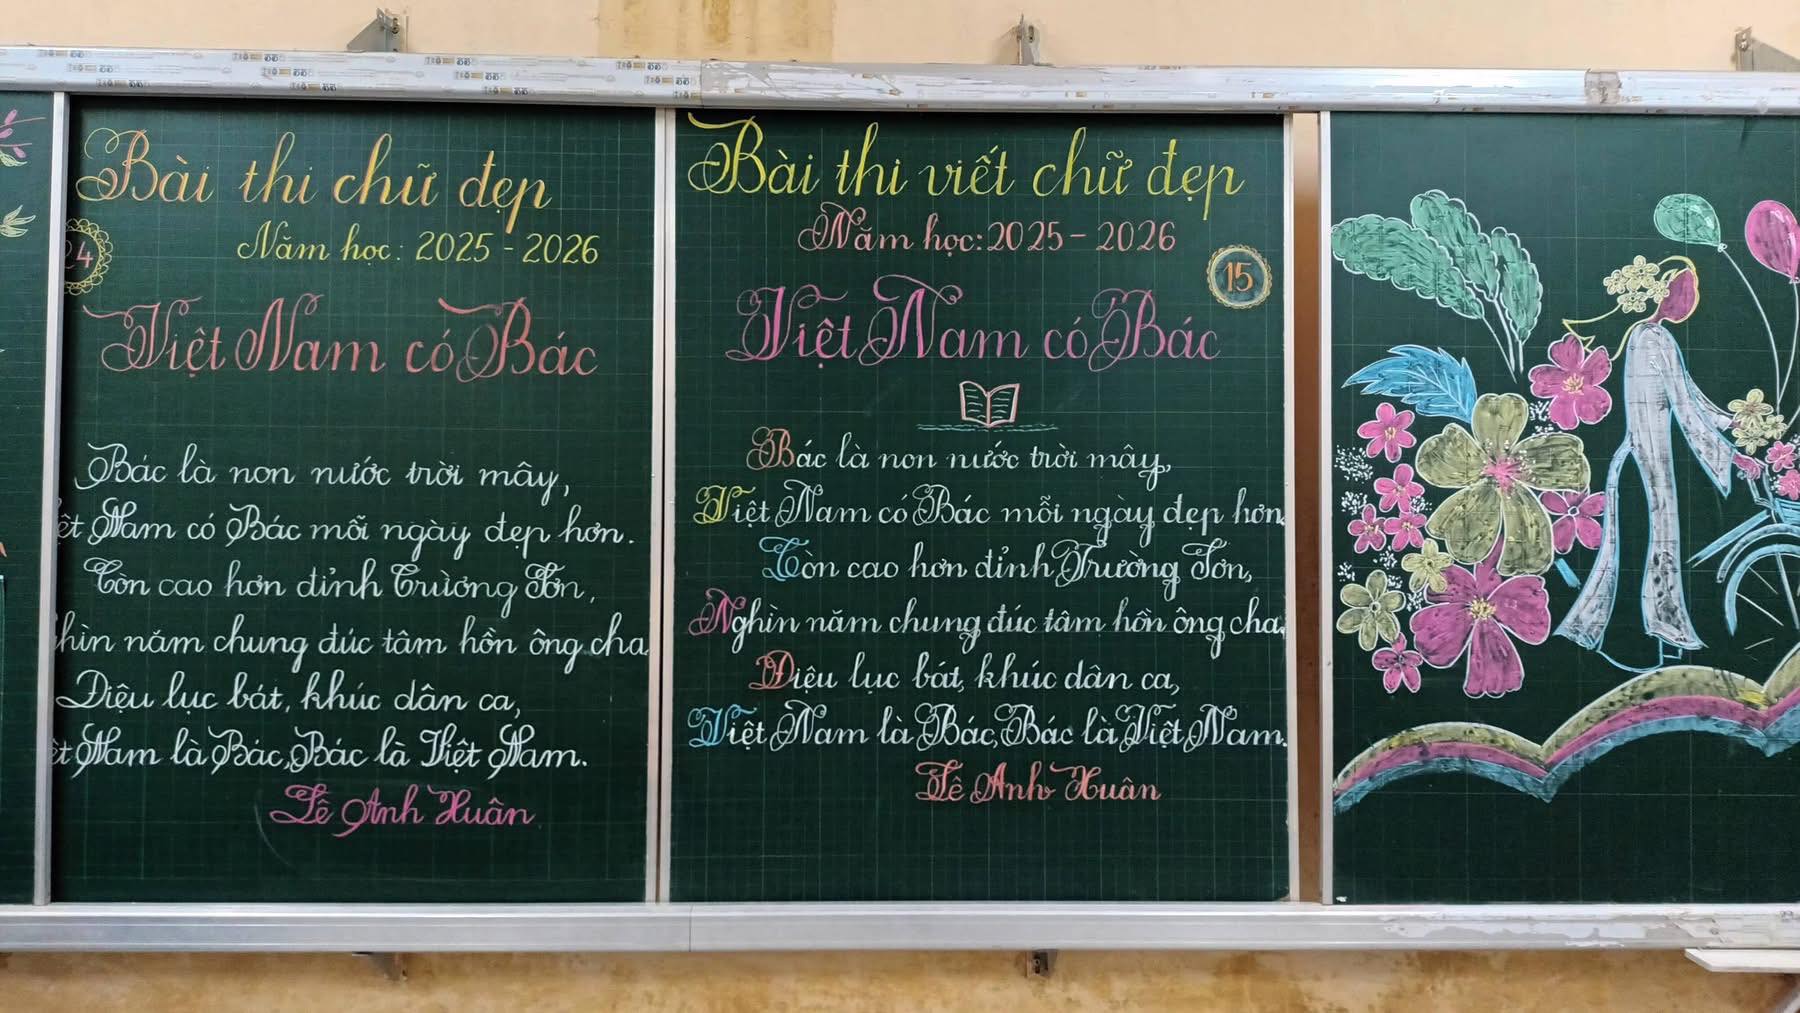 Bài thi chữ đẹp
Năm học: 2025 - 2026
24
Việt Nam có Bác
Bác là non nước trời mây,
ệt Nam có Bác mỗi ngày đẹp hơn.
Còn cao hơn đỉnh Trường Sơn,
hìn năm chung đúc tâm hồn ông cha.
Điệu lục bát, khúc dân ca,
ệt Nam là Bác, Bác là Việt Nam.
Lê Anh Xuân
Bài thi viết chữ đẹp
Năm học: 2025 - 2026
15
Việt Nam có Bác
Bác là non nước trời mây,
Việt Nam có Bác mỗi ngày đẹp hơn.
Còn cao hơn đỉnh Trường Sơn,
Nghìn năm chung đúc tâm hồn ông cha.
Điệu lục bát, khúc dân ca,
Việt Nam là Bác, Bác là Việt Nam.
Lê Anh Xuân